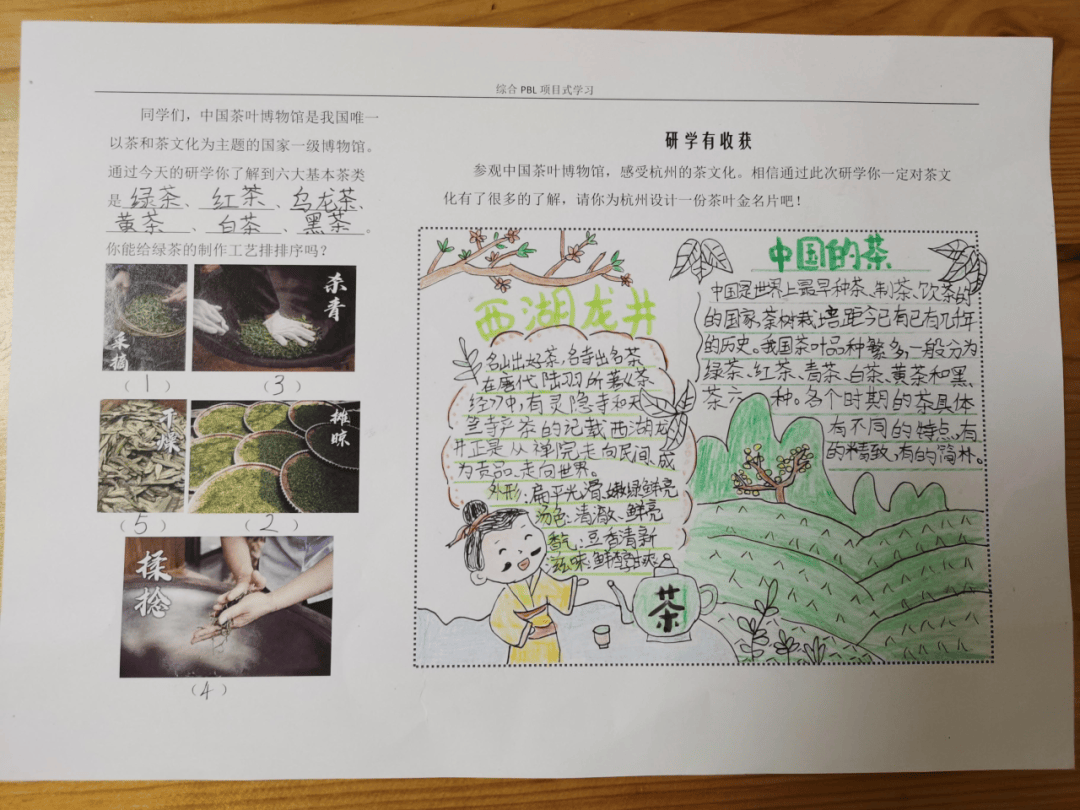 综合 PBL 项目式学习
同学们，中国茶叶博物馆是我国唯一
以茶和茶文化为主题的国家一级博物馆。
通过今天的研学你了解到六大基本茶类
是 绿茶、红茶、乌龙茶、
黄茶、白茶、黑茶。
你能给绿茶的制作工艺排排序吗？
采摘
杀青
（1）
（3）
干燥
摊晾
（5）
（2）
揉捻
（4）
研学有收获
参观中国茶叶博物馆，感受杭州的茶文化。相信通过此次研学你一定对茶文
化有了很多的了解，请你为杭州设计一份茶叶金名片吧！
西湖龙井
名山出好茶，名寺出名茶
在唐代陆羽所著《茶
经》中，有灵隐寺和天
竺寺产茶的记载西湖龙
井正是从禅院走向民间，成
为贡品，走向世界。
外形：扁平光滑、嫩绿鲜亮
汤色：清澈、鲜亮
香气：豆香清新
滋味：鲜醇甘爽
茶
中国的茶
中国是世界上最早种茶、制茶、饮茶的
的国家，茶树栽培距今已有已有几千年
的历史。我国茶叶品种繁多，一般分为
绿茶、红茶、青茶、白茶、黄茶和黑、
茶六一种。各个时期的茶具体
有不同的特点，有
的精致，有的简朴。